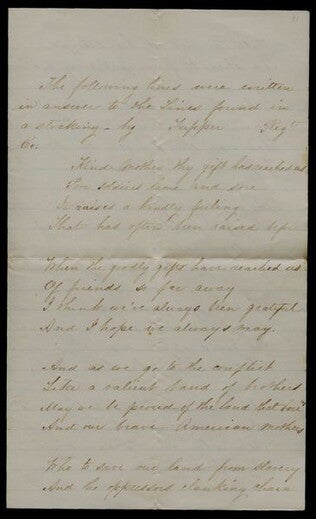 The following lines were written
in answer to the Lines found in
a stocking - by Tripper Regt
Co.
Kind Mother thy gift has reached us
and sore
It raises a kindly feeling
That has often been raised before
When the goodly gifts have reached us
Of friends so far away
I think we've always been grateful
And I hope we always may.
And as we go to the conflict
Like a valient band of brothers
May we be proud of the land that bore
And our brave American Mothers
Who to save our land from slavery
And the oppressors clanking chain